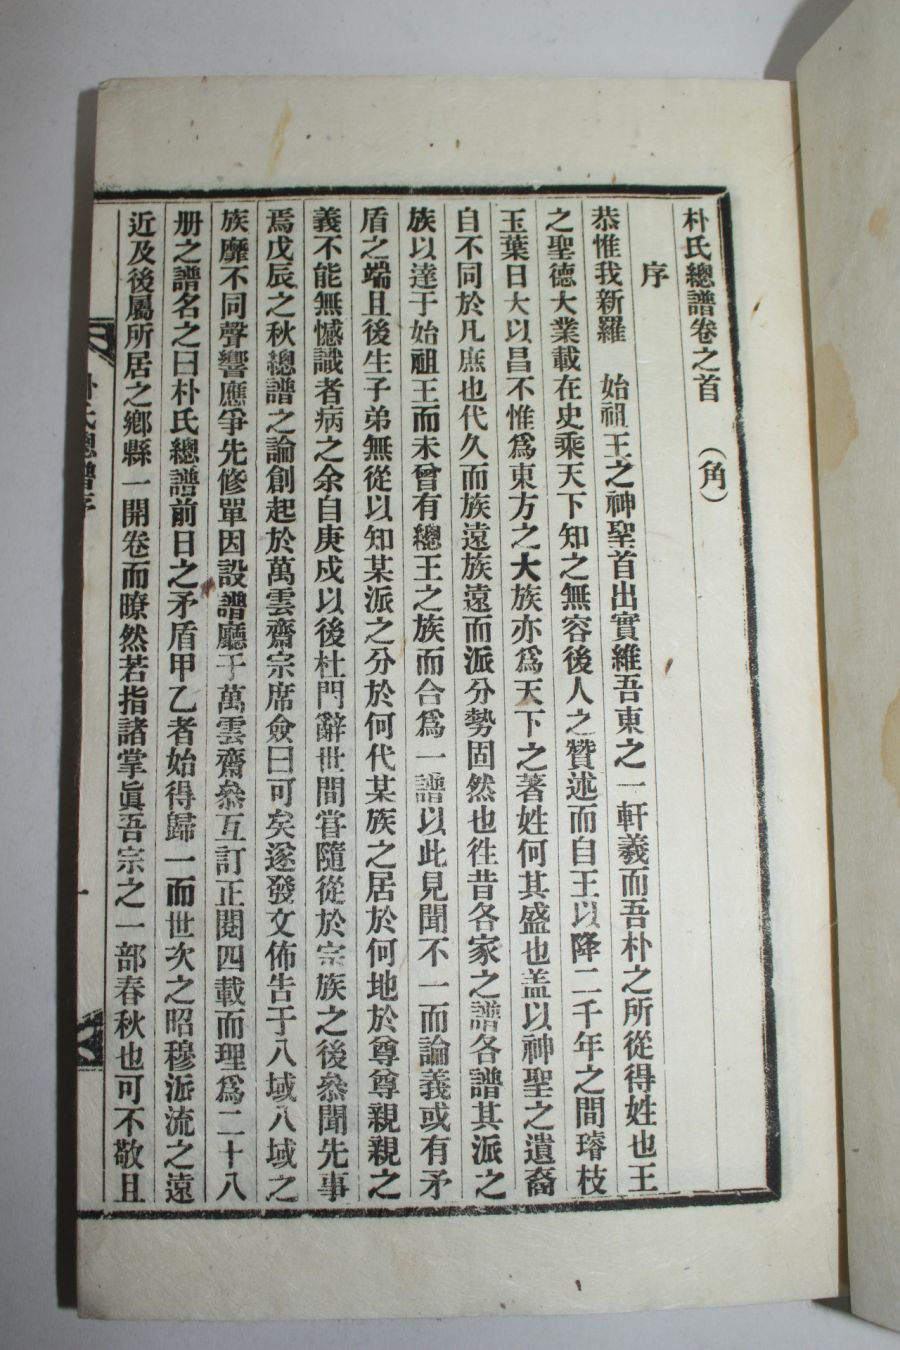 朴氏總譜卷之首　（角）
序
恭惟我新羅　始祖王之神聖首出實維吾東之一軒羲而吾朴之所從得姓也王
之聖德大業載在史乘天下知之無容後人之贊述而自王以降二千年之間璿枝
玉葉日大以昌不惟爲東方之大族亦爲天下之著姓何其盛也盖以神聖之遺裔
自不同於凡庶也代久而族遠族遠而派分勢固然也徃昔各家之譜各譜其派之
族以達于始祖王而未曾有總王之族而合爲一譜以此見聞不一而論義或有矛
盾之端且後生子弟無從以知某派之分於何代某族之居於何地於尊尊親親之
義不能無憾識者病之余自庚戌以後杜門辭世間甞隨從於宗族之後叅聞先事
焉戊辰之秋總譜之論創起於萬雲齋宗席僉曰可矣遂發文佈告于八域八域之
族靡不同聲響應爭先修單因設譜廳于萬雲齋叅互訂正閱四載而理爲二十八
册之譜名之曰朴氏總譜前日之矛盾甲乙者始得歸一而世次之昭穆派流之遠
近及後屬所居之鄕縣一開卷而瞭然若指諸掌眞吾宗之一部春秋也可不敬且
朴氏總譜序
一